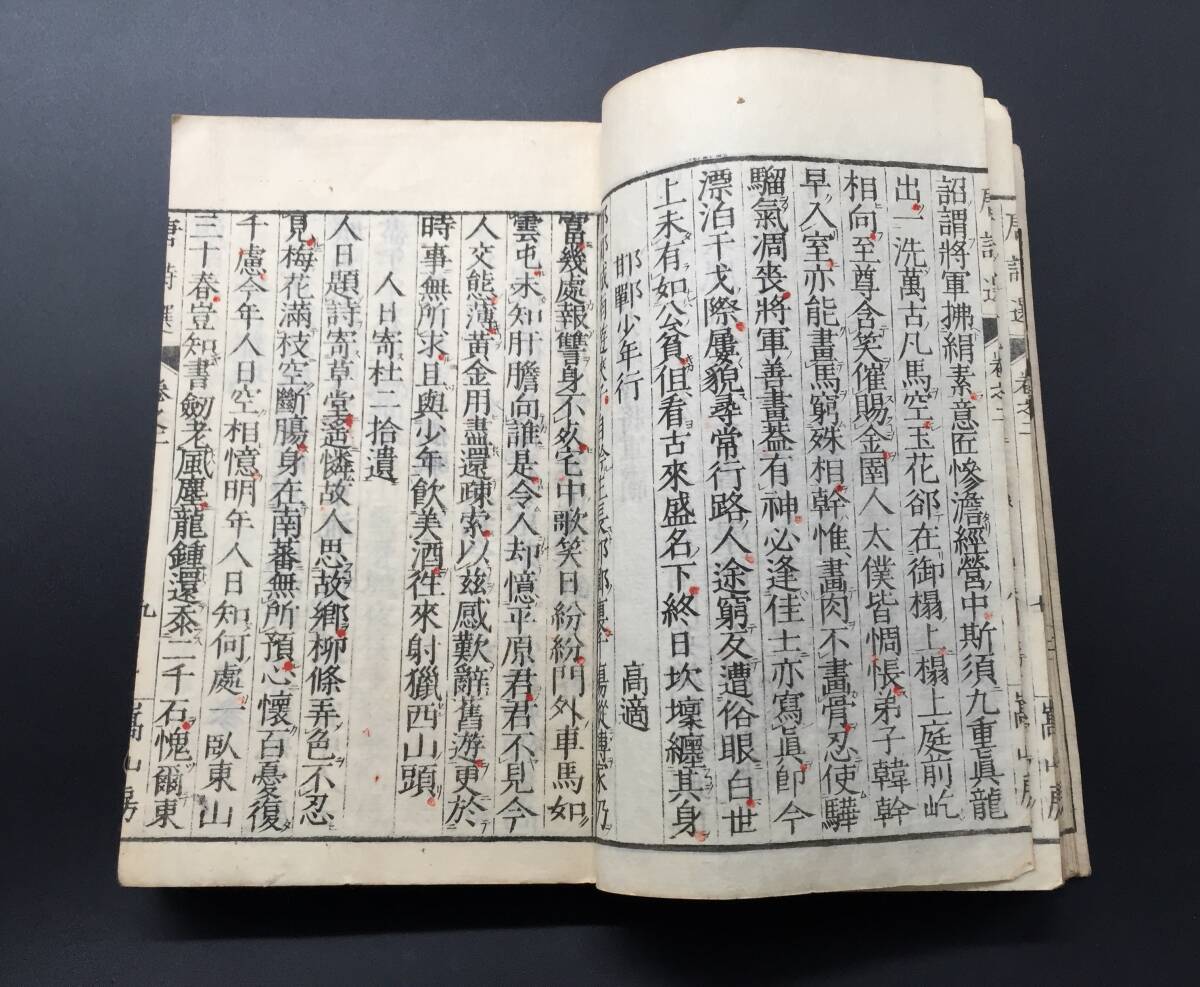 詔謂將軍拂絹素意匠慘澹經營中斯須九重眞龍
出一洗萬古凡馬空玉花郤在御榻上榻上庭前屹
相向至尊含笑催賜金圉人太僕皆惆悵弟子韓幹
早入室亦能畫馬窮殊相幹惟畫肉不畫骨忍使驊
騮氣凋喪將軍善畫蓋有神必逢佳士亦寫眞卽今
漂泊干戈際屢貌尋常行路人途窮友遭俗眼白世
上未有如公貧但看古來盛名下終日坎壈纏其身
邯鄲少年行 高適
富幾處報讐身不死宅中歌笑日紛紛門外車馬如
雲屯未知肝膽向誰是令人却憶平原君君不見今
人交態薄黃金用盡還疎索以茲感歎辭舊遊更於
時事無所求且與少年飮美酒徃來射獵西山頭
人日寄杜二拾遺
人日題詩寄草堂遙憐故人思故鄉柳條弄色不忍
見梅花滿枝空斷腸身在南蕃無所預心懷百憂復
千慮今年人日空相憶明年人日知何處一臥東山
三十春豈知書劒老風塵龍鍾還忝二千石愧爾東
唐詩選 卷之二 九 嵩山房